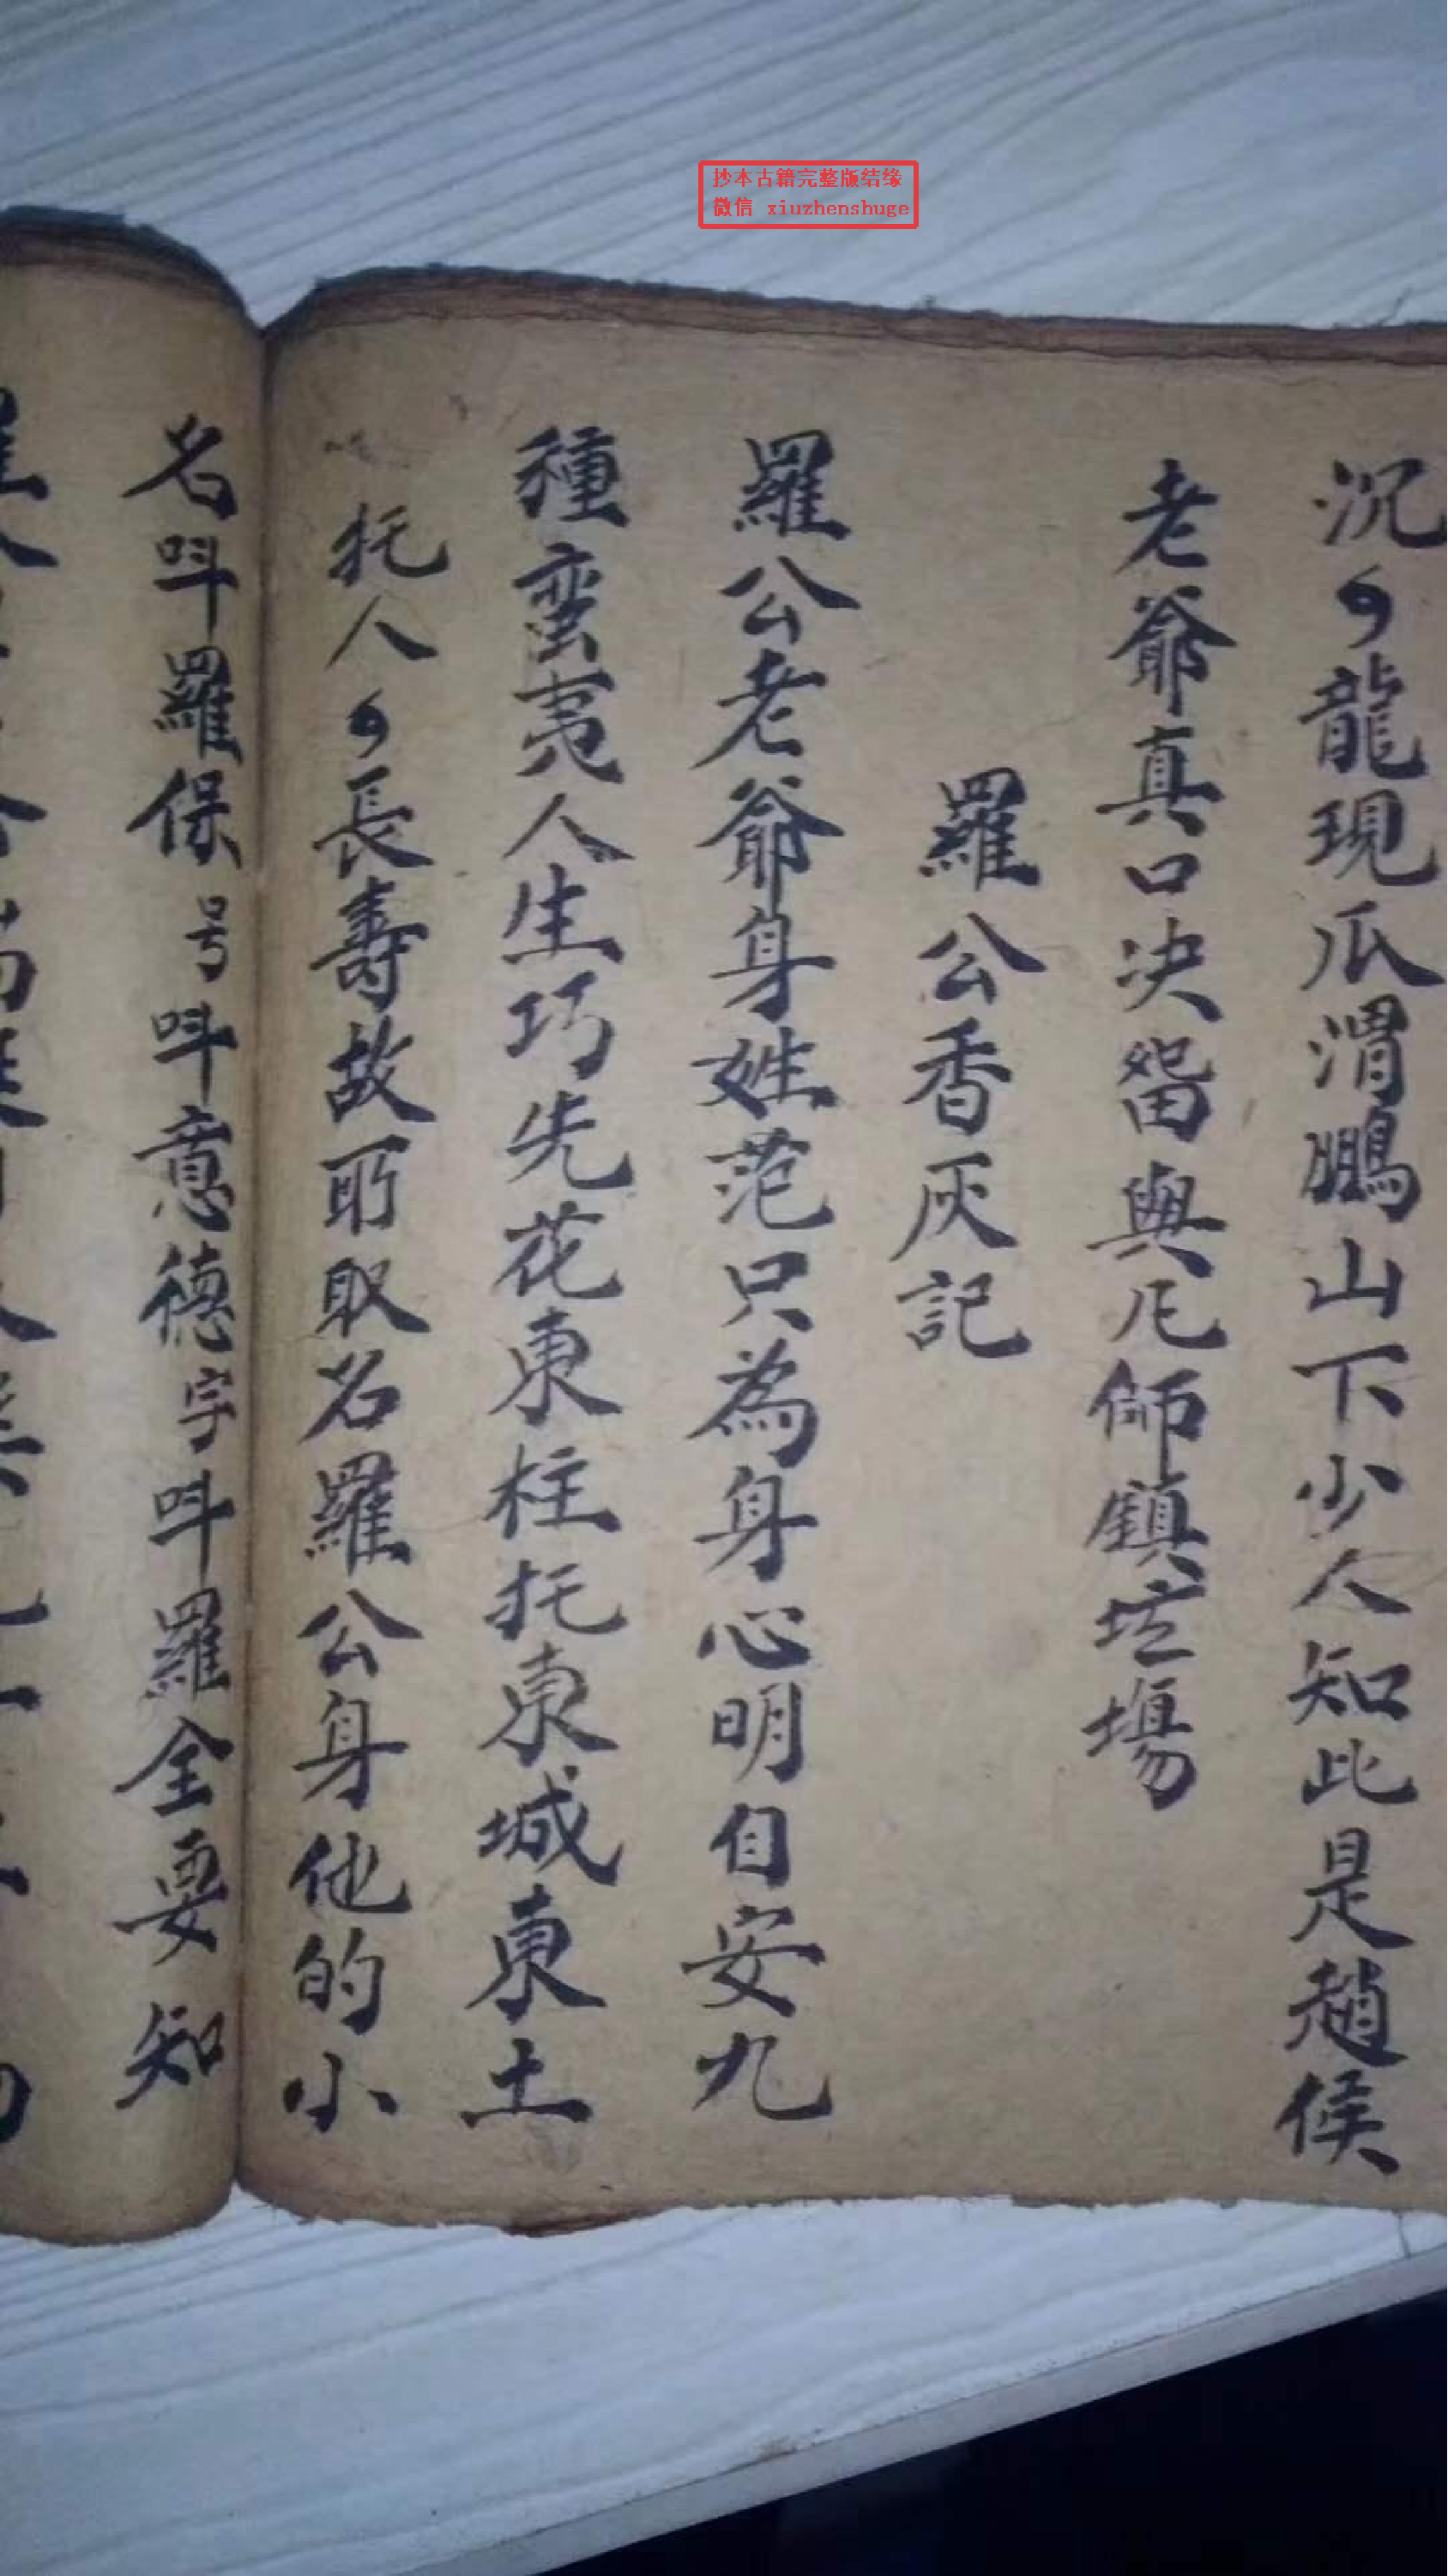 抄本古籍完整版结缘
微信 xiuzhenshuge
沉々龍現瓜渭鵬山下少人知此是趙侯
老爺真口决畱與凢師鎮坛場
羅公香灰記
羅公老爺身姓范只為身心明自安九
種蛮夷人生巧先花東柱托東城東土
托人々長壽故所取名羅公身他的小
名呌羅保号呌意德字呌羅全要知